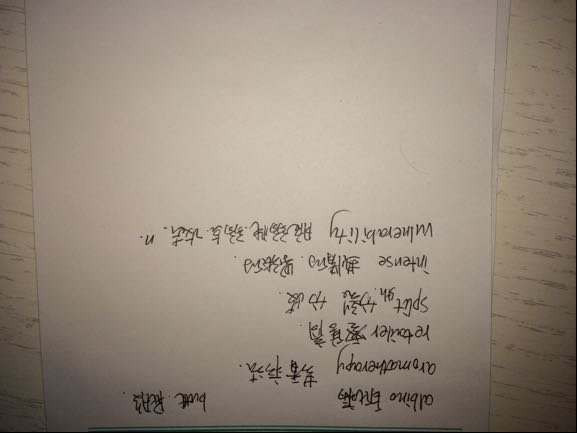 albino 白化病
aromatherapy 芳香疗法.
retailer 零售商
split 分裂 分歧.
intense 热情的.
vulnerability 脆弱性. 弱点. n.